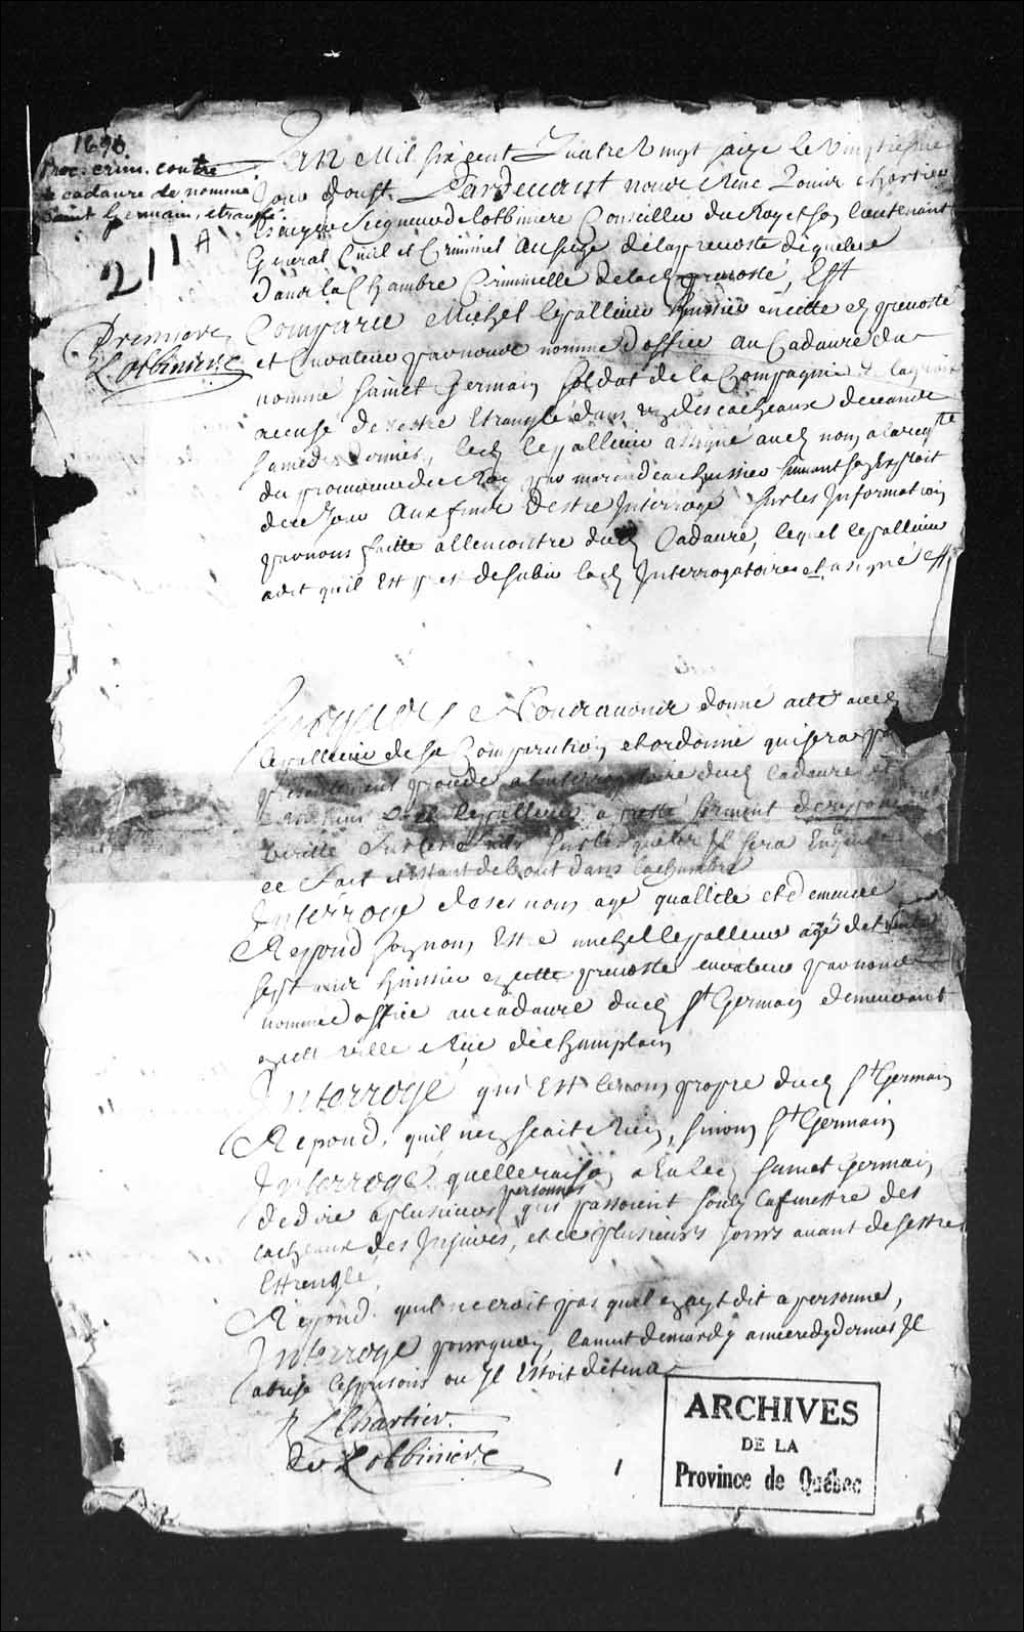 1696
Proc. crim. contre
le cadavre de nommé
Saint Germain, etranglé.
211 A
Premiere
R L Chartier
de Lotbiniere
Lan Mil six cent Quatre vingt saize le vingtiesme
Jour daoust Pardevant nous Rene Louis Chartier
Escuyer Seigneur de lotbiniere Conseiller du Roy et son lieutenant
General Civil et Criminel au siege de la prevosté de quebec
dans la Chambre Criminelle de lad prevosté, Est
Comparu Michel lepallieur huissier en cette d prevosté
et Curateur par nous nommé d'office au Cadavre du
nommé sainct Germain soldat de la Compagnie de
accusé de sestre Etranglé dans un des cacheaux
samedy dernier, led lepallieur assigné aud nom a la req.te
du procureur du Roy par huissier suivant son Exploit
de ce Jour aux fins Destre Interrogé sur les Information
par nous faitte allencontre dud Cadavre, lequel lepallieur
a dit quil Est prest de subir led Interrogatoire et a signé
Surquoy Nous avons donné acte aud
lepallieur de sa Comparution et ordonné qui sera
procedé a l'interrogatoire dud cadavre
led lepallieur a presté serment de
verité sur les faits sur lesquels Il sera Enquis
ce fait et estant debout dans la chambre
Interrogé de ses nom age quallité et demeure
Respond son nom Estre michel lepallieur agé de trente
sept ans huissier en cette prevosté curateur par nous
nommé d'office au cadavre dud St Germain demeurant
en cette ville Rüe de champlain
Interrogé qui Est le nom propre dud St Germain
Repond, quil nen scait Rien, sinon St Germain
Interrogé quelle raison a Eu led sainct Germain
de dire a plusieurs personnes qui passoient soubs la fenestre des
cacheaux des Injures, et ce plusieurs jours avant de sestre
Etranglé,
Respond. quil ne croit pas quil en ayt dit a personne,
Interrogé pourquoy, la nuit de mardy a mecredy dernier Il
a brisé les prisons ou Il Estoit détenu
R L Chartier
de Lotbiniere
1
ARCHIVES
DE LA
Province de Québec